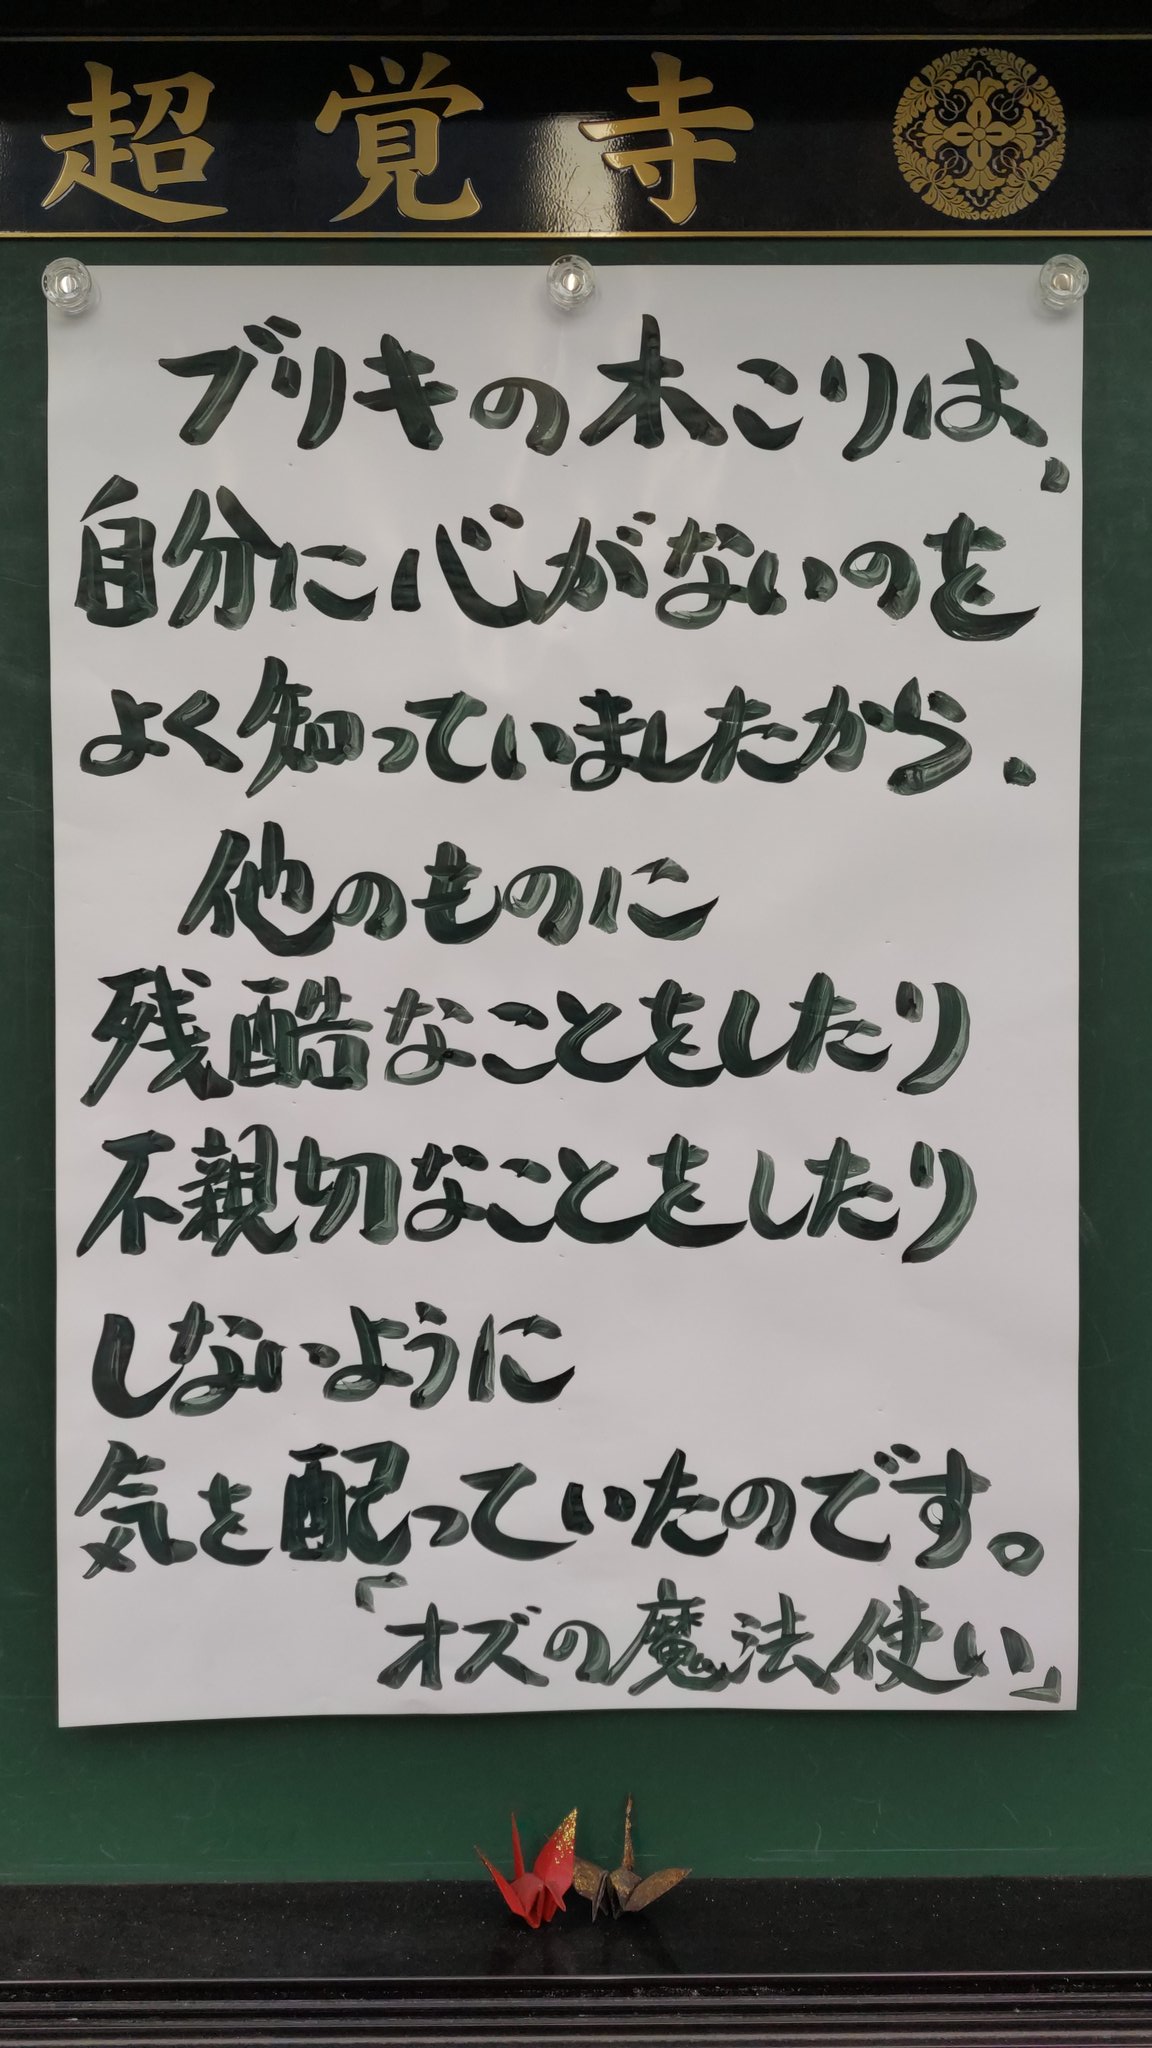 超覚寺
ブリキの木こりは、
自分に心がないのを
よく知っていましたから、
他のものに
残酷なことをしたり
不親切なことをしたり
しないように
気を配っていたのです。
「オズの魔法使い」